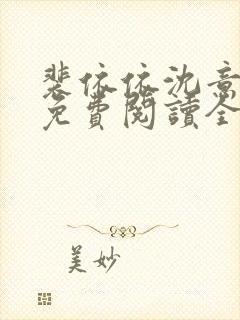 裴依依沈意
免費閱讀全
美妙